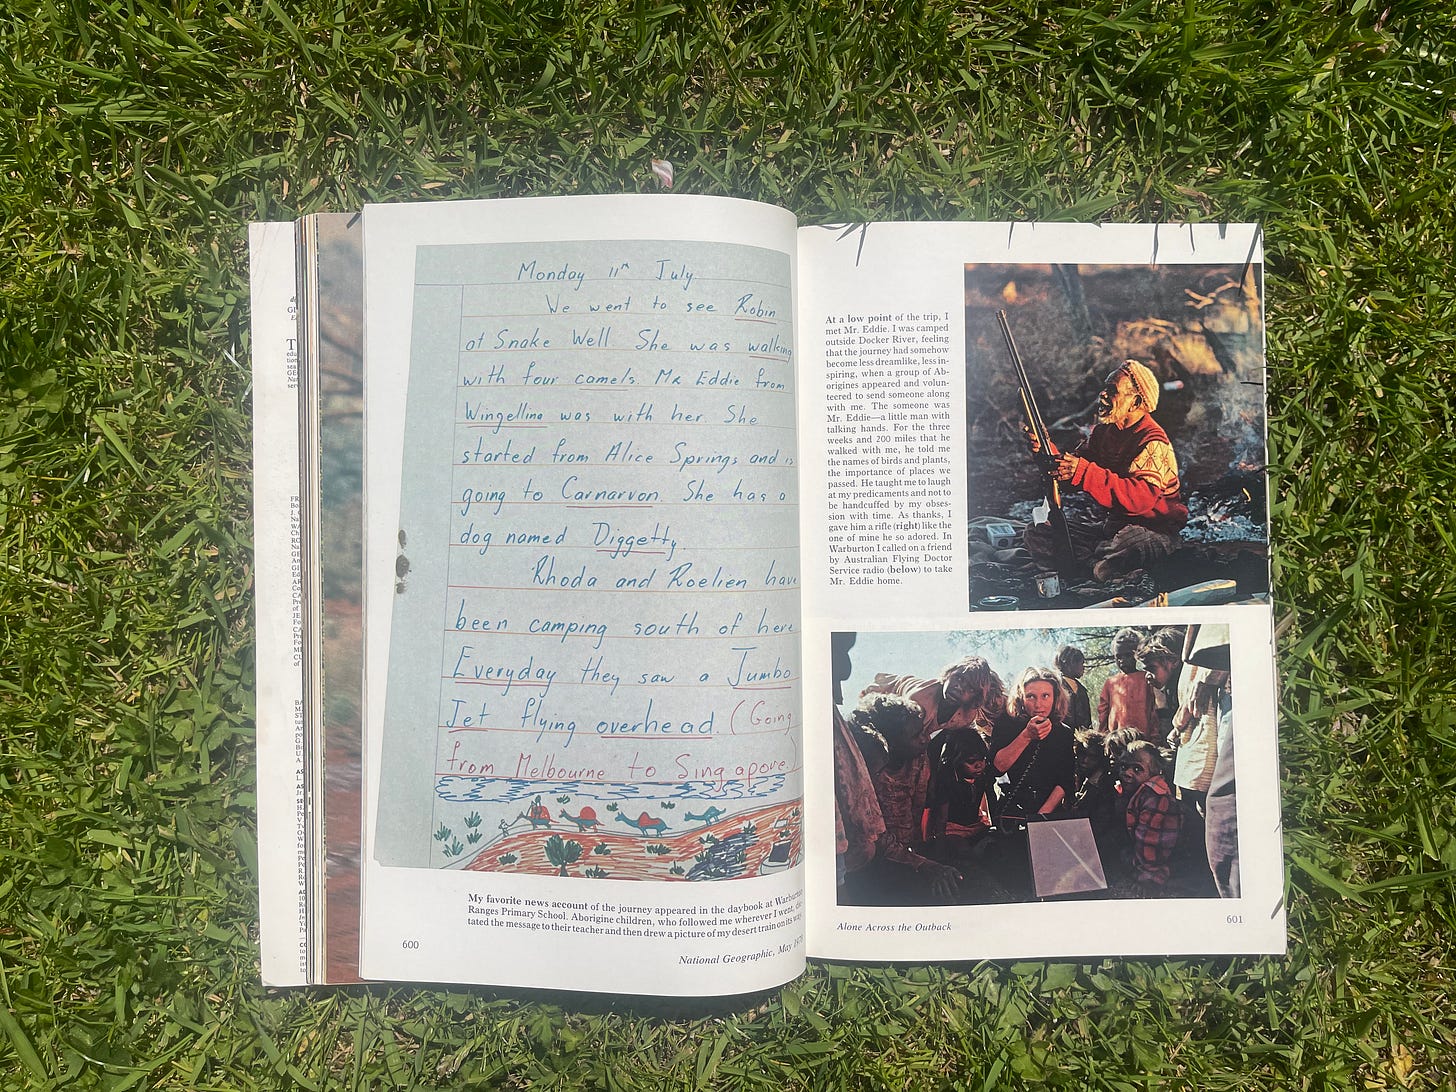 Monday 11th July
We went to see Robin
at Snake Well. She was walking
with four camels. Mr Eddie from
Wingellina was with her. She
started from Alice Springs and is
going to Carnarvon. She has a
dog named Diggetty.
Rhoda and Roelien have
been camping south of here
Everyday they saw a Jumbo
Jet flying overhead. (Going
from Melbourne to Singapore.)
My favorite news account of the journey appeared in the daybook at Warburton
Ranges Primary School. Aborigine children, who followed me wherever I went, dic-
tated the message to their teacher and then drew a picture of my desert train on its way.
600
National Geographic, May
At a low point of the trip, I
met Mr. Eddie. I was camped
outside Docker River, feeling
that the journey had somehow
become less dreamlike, less in-
spiring, when a group of Ab-
origines appeared and volun-
teered to send someone along
with me. The someone was
Mr. Eddie—a little man with
talking hands. For the three
weeks and 200 miles that he
walked with me, he told me
the names of birds and plants,
the importance of places we
passed. He taught me to laugh
at my predicaments and not to
be handcuffed by my obses-
sion with time. As thanks, I
gave him a rifle (right) like the
one of mine he so adored. In
Warburton I called on a friend
by Australian Flying Doctor
Service radio (below) to take
Mr. Eddie home.
Alone Across the Outback
601